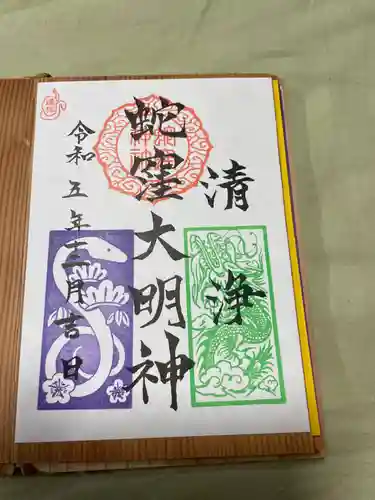 清浄
蛇窪大明神
令和五年十二月吉日